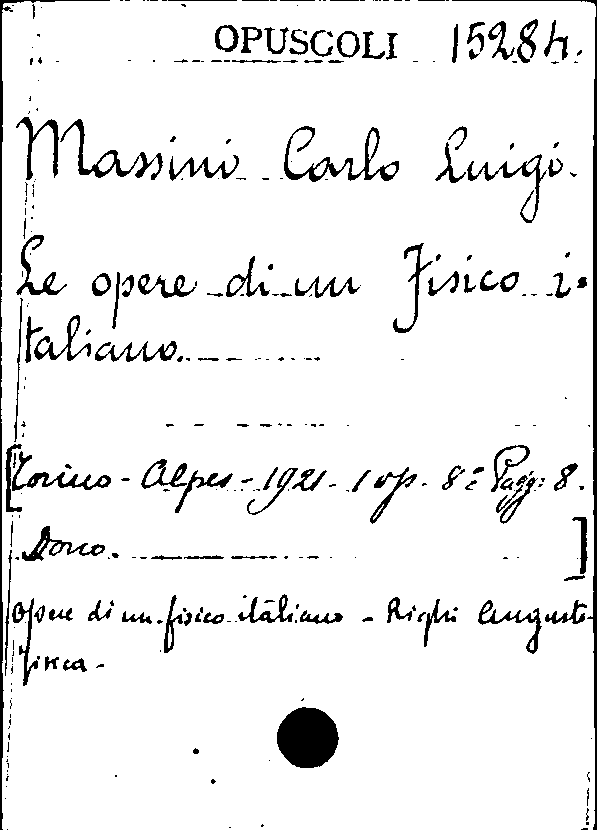 OPUSCOLI 15284.
Massini Carlo Luigi.
Le opere di un Fisico i-
taliano.
[Torino - Alpes - 1921. 1 op. 8º Pagg: 8.
Dono. ]
Opere di un fisico italiano - Righi Augusto-
Fisica -